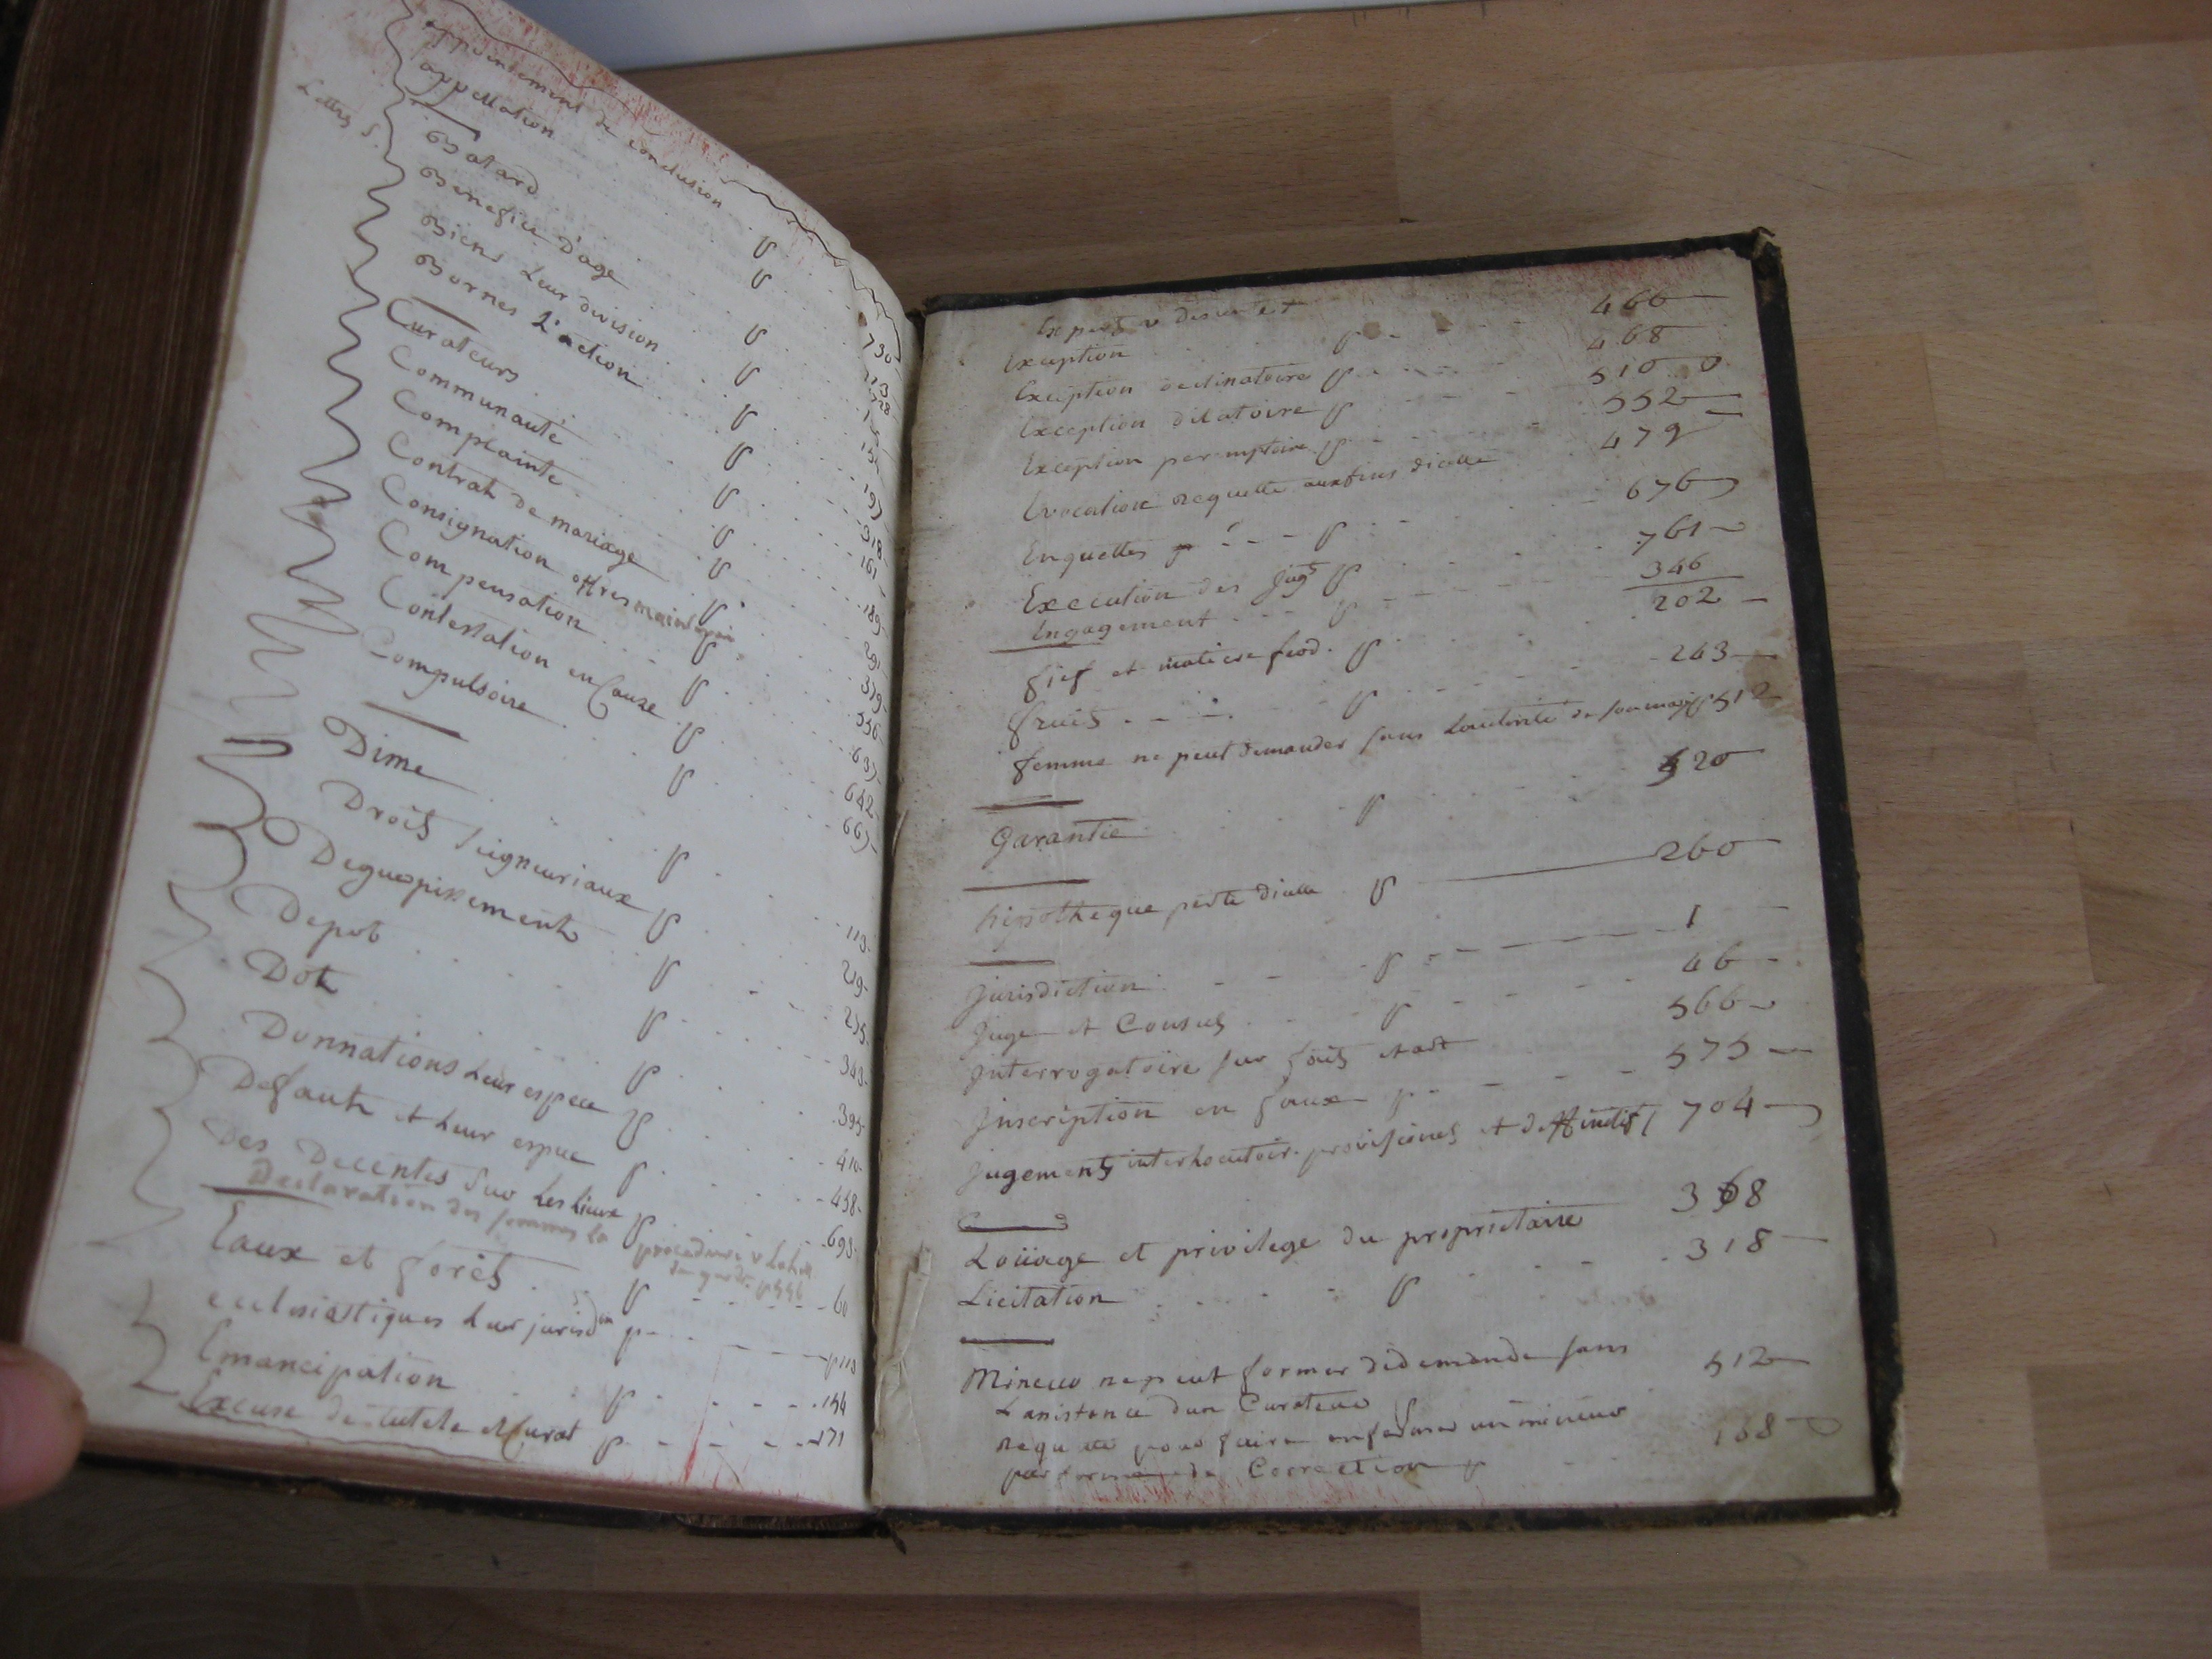 appointement de conclusion p 730
appellation p 113
Lettres S.
Batard p 128
Benefice d'age p
Biens Leur division p
Bornes L'action p 197
Curateurs p
Communauté p 318
Complainte p 161
Contrat de mariage p 189
Consignation offres p 291
Compensation p 379
Contestation en Cause p
Compulsoire p
Dime p 113
Droits seigneuriaux p 219
Deguerpissement p 235
Depot p 343
Dot p 395
Donnations Leur espece p 410
Defauts et Leur espece p 458
Des Decentes Sur Les lieux p 693
Declaration des procedure v
Eaux et forets p 60
ecclesiastiques Leur jurisdon p p 113
Emancipation p 154
Excuse de tutele et Curat p 171
Experts v descente
Exception p 466
Exception declinatoire p 468
Exception dilatoire p 510
Exception peremptoire p 552
Evocation Requette aux fins dicelle 479
Enquettes p 676
Execution des Jugts p 761
Engagement p 346
fief et matiere feod. p 202
fruits p 243
femme ne peut demander sans Lautorité de son mary p 512
Garantie p 520
hipotheque perte dicelle p 260
Jurisdiction p 1
Juge et Consuls p 46
Interrogatoire sur faits et art 566
Inscription en faux p 575
Jugements interlocutoir. provisoires et deffinitifs 704
Loüage et privilege du proprietaire 368
Licitation p 318
Mineur ne peut former de demande sans 512
Lassistance dun Curateur
Requette pour faire enfermer un mineur 168
par forme de Correction p